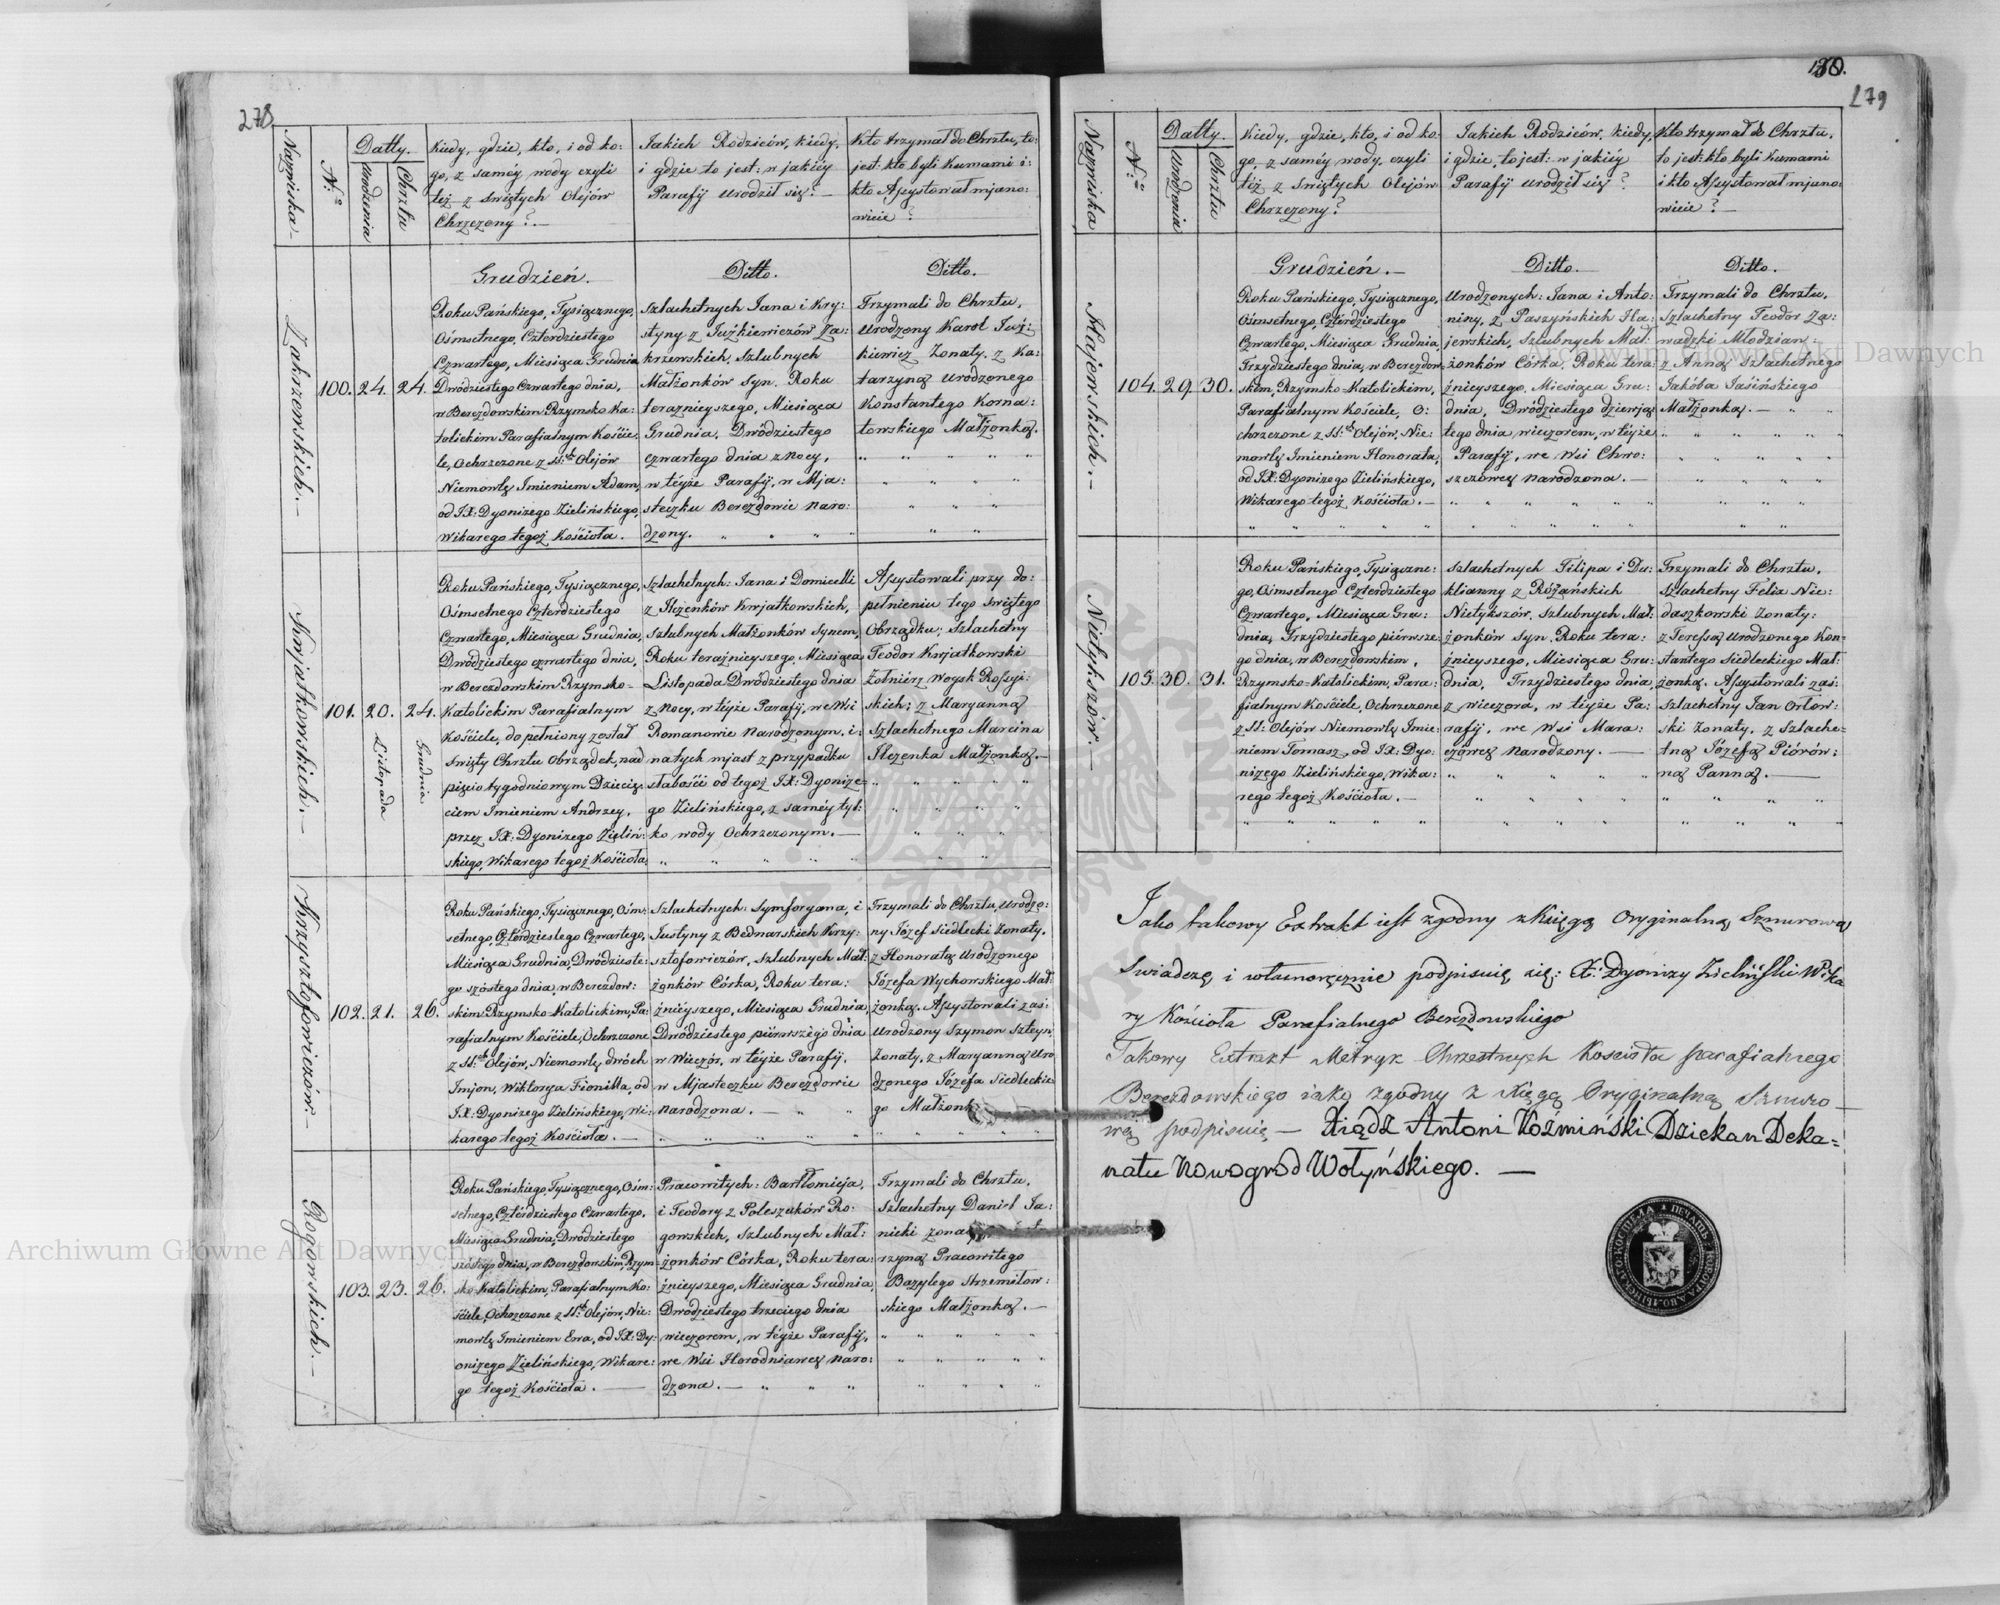 278
Nazwiska
N:o
Datty.
Urodzenia
Chrztu
Kiedy, gdzie, kto, i od ko:
go, z saméy wody czyli
téż z świętych Olejów
Chrzczony? —
Jakich Rodziców, kiedy,
i gdzie to jest: w jakiéy
Parafij urodził się? —
Kto trzymał do Chrztu, to:
jest: kto byli Kumami i:
kto Assystował mjano:
wicie?
Zakrzewskich. —
100. 24. 24.
Grudzień.
Roku Pańskiego, Tysiącznego,
Ośmsetnego, Czterdziestego
Czwartego, Miesiąca Grudnia
Dwódziestego Czwartego dnia,
w Berezdowskim Rzymsko Ka:
tolickim Parafialnym Koście:
le, Ochrzczone z SS:ch Olejów
Niemowlę Imieniem Adam,
od JX: Dyonizego Zielińskiego,
Wikarego tegoż Kościoła.
Ditto.
Szlachetnych Jana i Kry:
styny z Juśkiewiczów Za:
krzewskich, Szlubnych
Małżonków Syn. Roku
teraznieyszego, Miesiąca
Grudnia, Dwódziestego
czwartego dnia z nocy,
w téyże Parafij, w Mja:
steczku Berezdowie naro:
dzony.
Ditto.
Trzymali do Chrztu,
Urodzony Karol Juś:
kiewicz Żonaty. z Ka:
tarzyną Urodzonego
Konstantego Korna:
towskiego Małżonką.
Kwjatkowskich. —
101. 20. Listopada 24. Grudnia
Roku Pańskiego, Tysiącznego,
Ośmsetnego Czterdziestego
Czwartego, Miesiąca Grudnia,
Dwódziestego czwartego dnia,
w Berezdowskim Rzymsko —
Katolickim Parafialnym
Kościele, dopełniony został
święty Chrztu Obrządek, nad
pięcio tygodniowym Dziecię:
ciem Imieniem Andrzey,
przez JX: Dyonizego Zieliń:
skiego, Wikarego tegoż Kościoła.
Szlachetnych: Jana i Domicelli
z Ilczenków Kwjatkowskich,
Szlubnych Małżonków Synem,
Roku teraźnieyszego, Miesiąca
Listopada Dwódziestego dnia
z Nocy, w téyże Parafij, we Wsi
Romanowie Narodzonym, i:
natych mjast z przypadku
słabości od tegoż JX: Dyonize:
go Zielińskiego, z saméy tyl:
ko wody Ochrzczonym. —
Assystowali przy do:
pełnieniu tego świętego
Obrządku; Szlachetny
Teodor Kwjatkowski
Żołniérz Woysk Rossyj:
skich; z Maryanną
Szlachetnego Marcina
Ilczenka Małżonką. —
Krysztofowiczów. —
102. 21. 26.
Roku Pańskiego, Tysiącznego, Ośm:
setnego, Czterdziestego Czwartego,
Miesiąca Grudnia, Dwódzieste:
go szóstego dnia, w Berezdow:
skim Rzymsko Katolickim, Pa:
rafialnym Kościele, Ochrzczone
z SS:ch Olejów, Niemowlę dwóch
Imjon, Wiktorya Fionilla, od
JX: Dyonizego Zielińskiego, Wi:
karego tegoż Kościoła. —
Szlachetnych: Symforyana, i
Justyny z Bednarskich Krzy:
sztofowiczów, Szlubnych Mał:
żonków Córka, Roku tera:
źnieyszego, Miesiąca Grudnia,
Dwódziestego piérwszégo dnia
w Wieczór, w téyże Parafij,
w Mjasteczku Berezdowie
narodzona. —
Trzymali do Chrztu, Urodzo:
ny Józef Siedlecki Żonaty,
z Honoratą Urodzonego
Józefa Wychowskiego Mał:
żonką. Assystowali zaś:
Urodzony Szymon Szteyn
Żonaty, z Maryanną Uro
dzonego Józefa Siedleckie
go Małżonk
Rogowskich. —
103. 23. 26.
Roku Pańskiego, Tysiącznego, Ośm:
setnego, Czterdziestego Czwartego,
Miesiąca Grudnia, Dwódziestego
szóstego dnia, w Berezdowskim, Rzym:
sko-Katolickim, Parafialnym Ko:
ściele, Ochrzczone z SS:ch Olejów, Nie:
mowlę Imieniem Ewa, od JX: Dy:
onizego Zielińskiego, Wikare:
go tegoż Kościoła. —
Pracowitych: Bartłomieja,
i Teodory z Poleszuków Ro:
gowskich, Szlubnych Mał:
żonków Córka, Roku tera:
źnieyszego, Miesiąca Grudnia,
Dwódziestego trzeciego dnia
wieczorem, w téyże Parafij,
we Wsi Horodniawce Naro:
dzona. —
Trzymali do Chrztu,
Szlachetny Daniel Ja:
nicki żona
rzyną Pracowitego
Bazylego Strzemilow:
skiego Małżonką. —
279
Nazwiska
N:o
Datty.
Urodzenia
Chrztu
Kiedy, gdzie, kto, i od ko:
go, z saméy wody, czyli
téż z świętych Olejów
Chrzczony?
Jakich Rodziców, kiedy,
i gdzie, to jest: w jakiéy
Parafij urodził się?
Kto trzymał do Chrztu,
to jest: kto byli Kumami
i kto Assystował mjano:
wicie? —
Hajewskich. —
104. 29. 30.
Grudzień. —
Roku Pańskiego, Tysiącznego,
Ośmsetnego, Czterdziestego
Czwartego, Miesiąca Grudnia
Trzydziestego dnia, w Berezdow:
skim, Rzymsko-Katolickim,
Parafialnym Kościele, O:
chrzczone z SS:ch Olejów, Nie:
mowlę Imieniem Honorata,
od JX: Dyonizego Zielińskiego,
Wikarego tegoż Kościoła. —
Ditto. —
Urodzonych: Jana i Anto:
niny, z Paszyńskich Ha:
jewskich, Szlubnych Mał:
żonków Córka, Roku tera:
źnieyszego, Miesiąca Gru:
dnia, Dwódziestego dziewją:
tego dnia wieczorem, w téyże
Parafij, we Wsi Chwo:
szczówce narodzona. —
Ditto. —
Trzymali do Chrztu,
Szlachetny Teodor Za:
wadzki Młodzian:
z Anną Szlachetnego
Jakóba Jasińskiego
Małżonką. —
Nietykszów. —
105. 30. 31.
Roku Pańskiego, Tysiączne:
go, Ośmsetnego Czterdziestego
Czwartego, Miesiąca Gru:
dnia, Trzydziestego piérwsze:
go dnia, w Berezdowskim,
Rzymsko-Katolickim, Para:
fialnym Kościele, Ochrzczone
z SS: Olejów Niemowlę Imie:
niem Tomasz, od JX: Dyo:
nizego Zielińskiego, Wika:
rego tegoż Kościoła. —
Szlachetnych Filipa i Du:
klianny z Różańskich
Nietykszów, Szlubnych Mał:
żonków Syn. Roku tera:
źnieyszego, Miesiąca Gru:
dnia, Trzydziestego dnia,
z wieczora, w téyże Pa:
rafij, we Wsi Mara:
czówce Narodzony. —
Trzymali do Chrztu,
Szlachetny Felix Nie:
daszkowski Żonaty:
z Teressą Urodzonego Kon:
stantego Siedleckiego Mał:
żonką. Assystowali zaś:
Szlachetny Jan Orłow:
ski Żonaty, z Szlache:
tną Józefą Piórów:
ną Panną. —
Jako takowy Extrakt iest zgodny z Księgą Oryginalną Sznurową
Swiadczę i własnoręcznie podpisuię się: X: Dyonizy Zieliński Wika
ry Kościoła Parafialnego Berezdowskiego
Takowy Extrakt Metryk Chrzestnych Koscioła parafialnego
Berezdowskiego iako zgodny z Xięgą Oryginalną Sznuro —
wą podpisuię — Xiądz Antoni Koźmiński Dziekan Deka=
natu Nowogrod Wołyńskiego. —
Archiwum Główne Akt Dawnych
Archiwum Główne Akt Dawnych